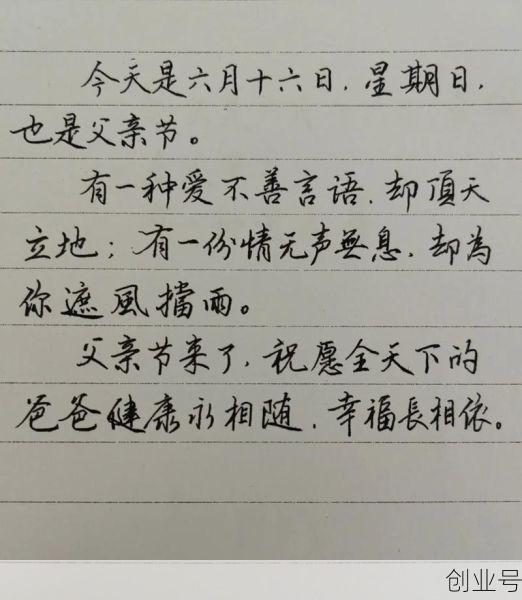 今天是六月十六日,星期日,
也是父亲节。
有一种爱不善言语,却頂天
立地;有一份情无声無息,却為
你遮風擋雨。
父亲节来了,祝愿全天下的
爸爸健康永相随,幸福長相依。
创业号